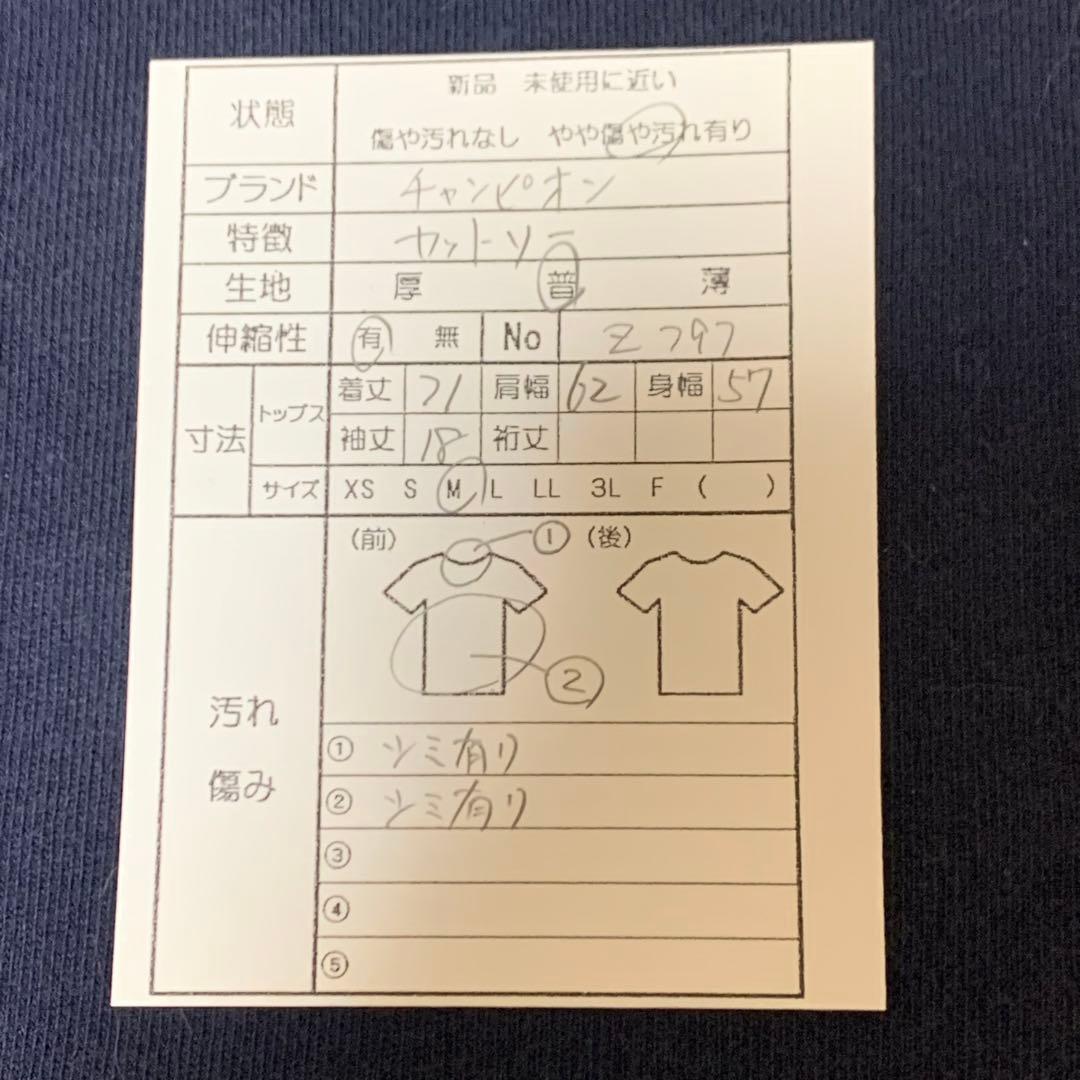 状態 新品 未使用に近い
傷や汚れなし やや傷や汚れ有り
ブランド チャンピオン
特徴 カットソー
生地 厚 普 薄
伸縮性 有 無 No Z797
寸法 トップス 着丈 71 肩幅 62 身幅 57
袖丈 18 裄丈
サイズ XS S M L LL 3L F ( )
汚れ 傷み
(前) ① (後)
②
① シミ有り
② シミ有り
③
④
⑤